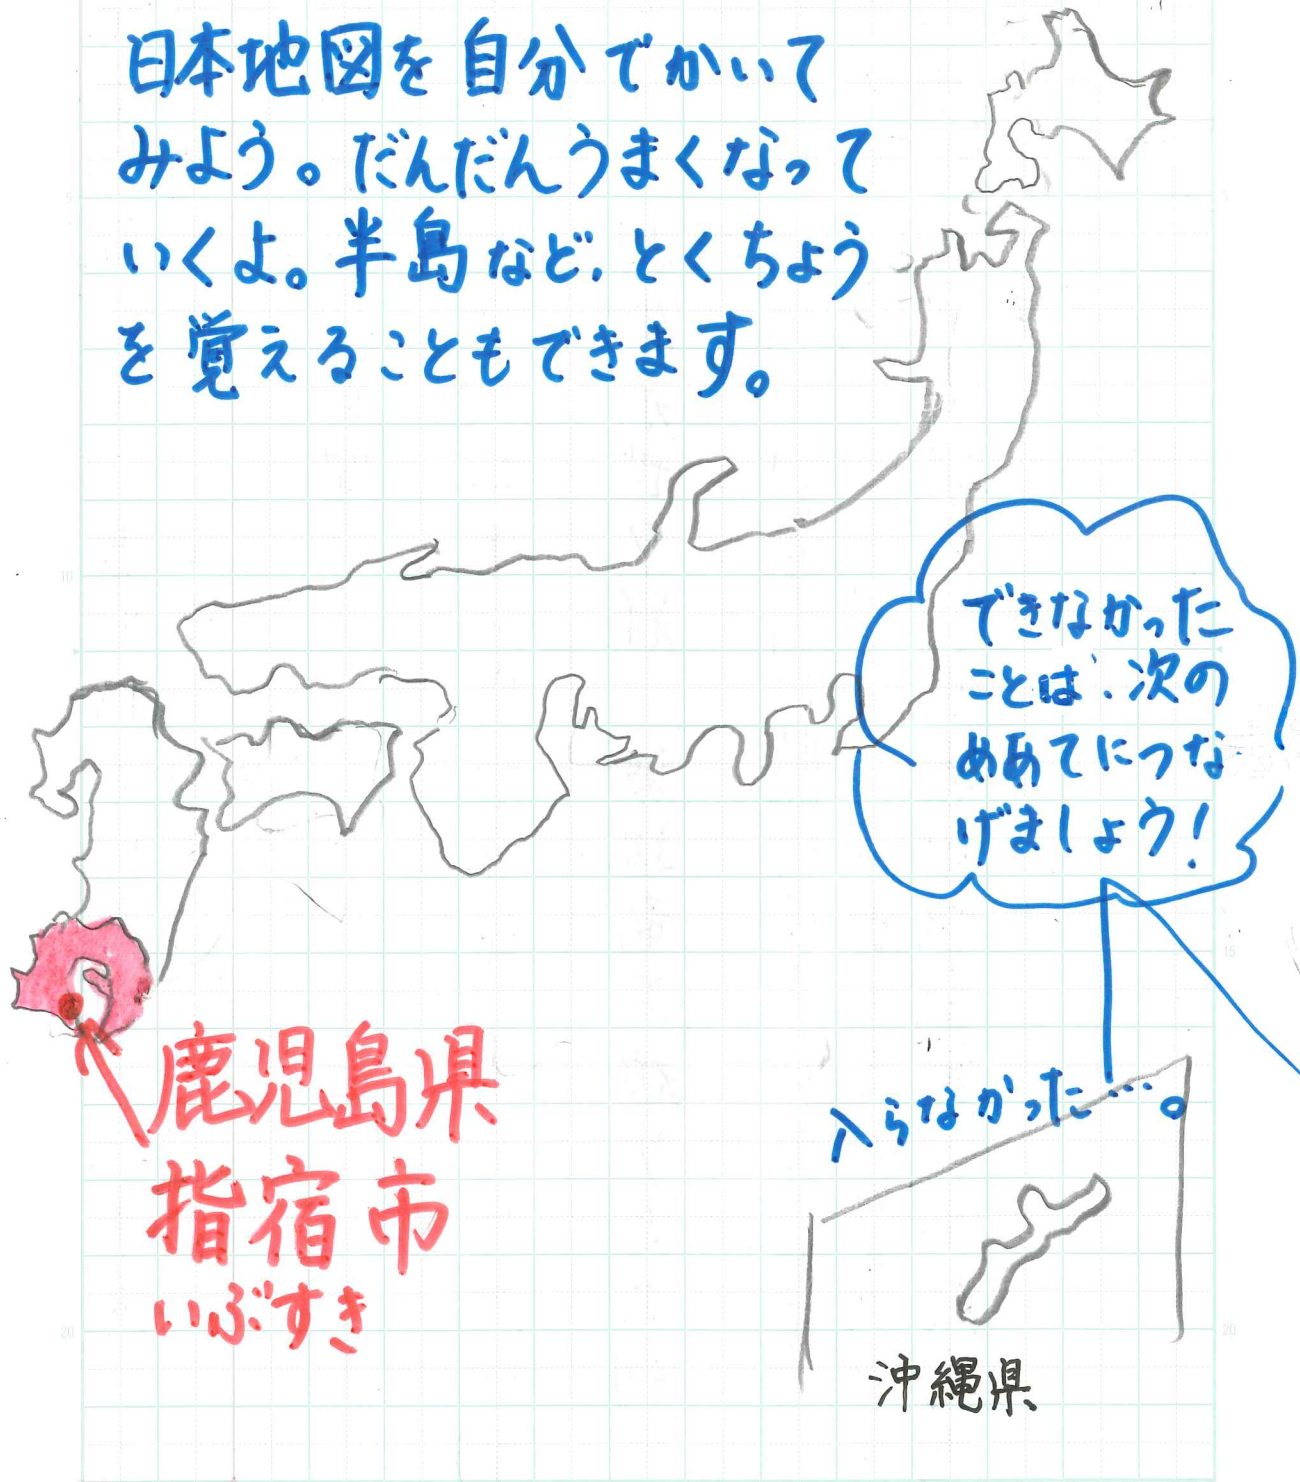 日本地図を自分でかいて
みよう。だんだんうまくなって
いくよ。半島など、とくちょう
を覚えることもできます。
できなかった
ことは、次の
めあてにつな
げましょう!
鹿児島県
指宿市
いぶすき
入らなかった…。
沖縄県
10
15
20
20